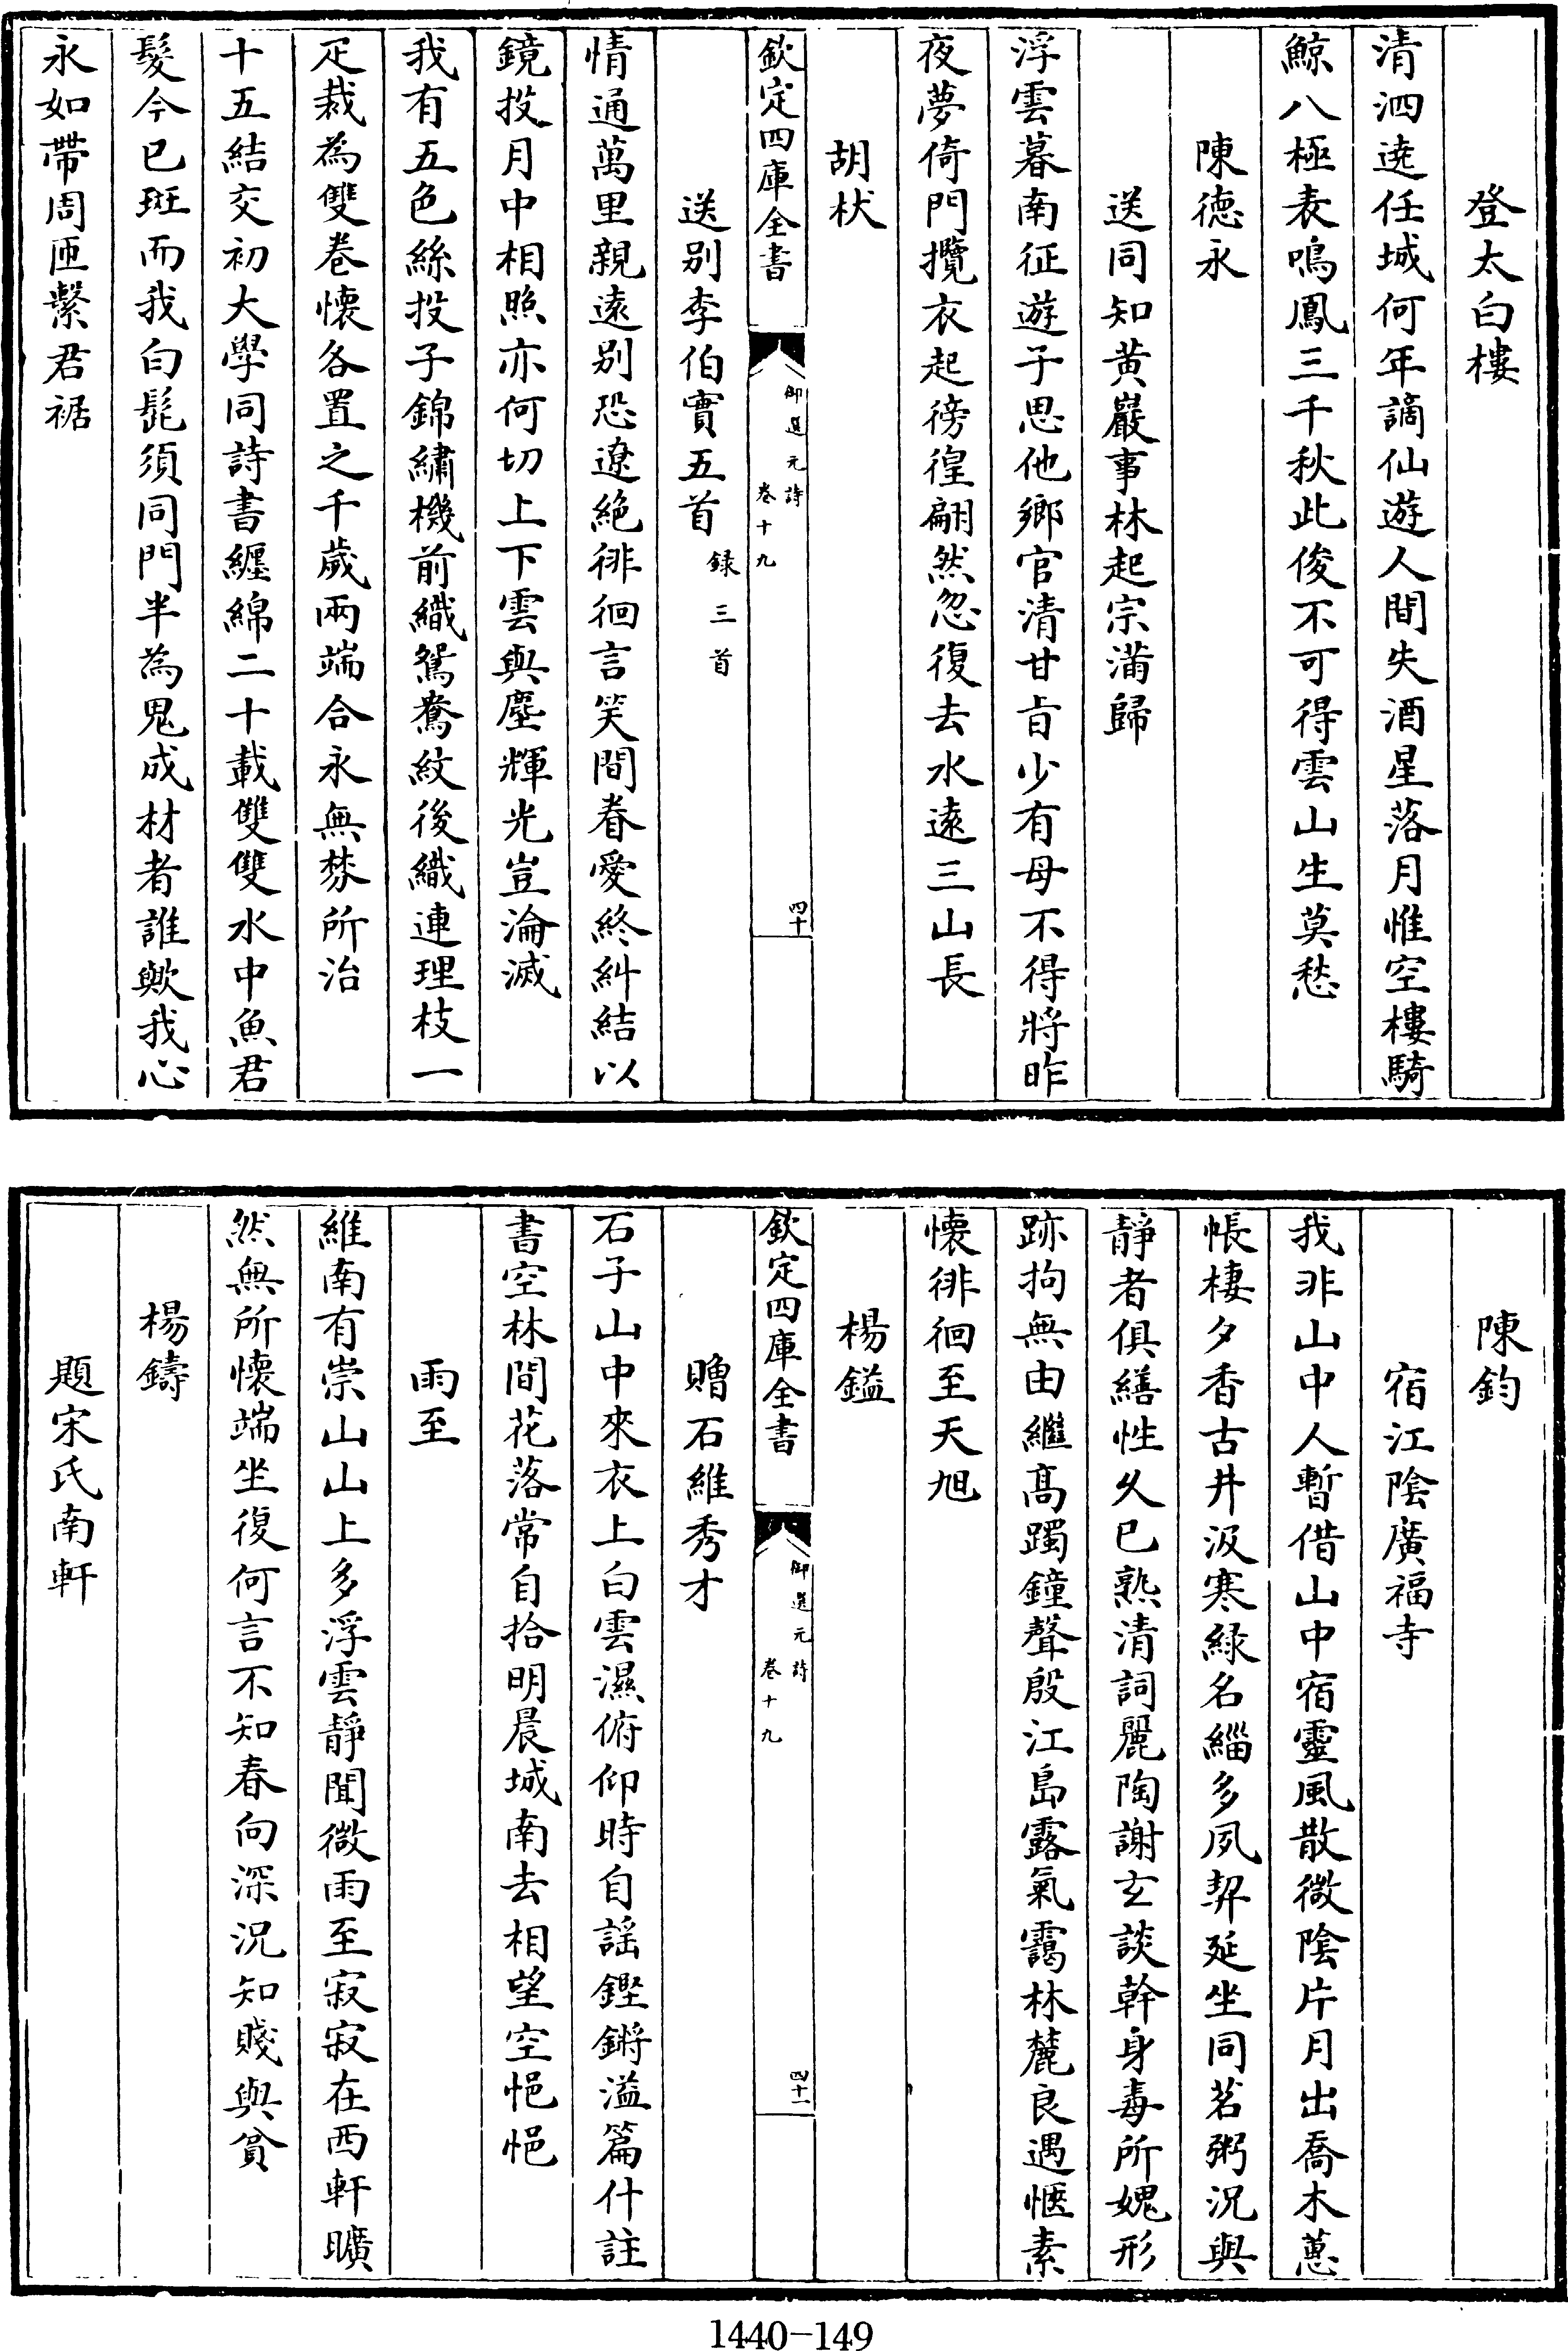 登太白樓
清泗遶任城何年謫仙遊人間失酒星落月惟空樓騎
鯨八極表鳴鳳三千秋此俊不可得雲山生莫愁
陳德永
送同知黄巖事林起宗滿歸
浮雲暮南征遊子思他鄉官清甘㫖少有母不得將昨
夜夢倚門攬衣起徬徨翩然忽復去水遠三山長
胡杕
欽定四庫全書
御選元詩
卷十九
四十
送别李伯實五首録三首
情通萬里親遠别恐遼絶徘徊言笑間眷愛終糾結以
鏡投月中相照亦何切上下雲與塵輝光豈淪滅
我有五色絲投子錦繡機前織鴛鴦紋後織連理枝一
疋裁為雙卷懷各置之千歲兩端合永無棼所治
十五結交初大學同詩書纏綿二十載雙雙水中魚君
髮今已斑而我白髭須同門半為鬼成材者誰歟我心
永如帶周匝繫君裾
陳鈞
宿江隂廣福寺
我非山中人暫借山中宿靈風散微隂片月出喬木蕙
帳棲夕香古井汲寒緑名緇多夙契延坐同茗粥況與
靜者俱繕性久已熟清詞麗陶謝玄談幹身毒所媿形
跡拘無由繼髙躅鐘聲殷江島露氣靄林麓良遇愜素
懷徘徊至天旭
楊鎰
欽定四庫全書
御選元詩
卷十九
四十一
贈石維秀才
石子山中來衣上白雲濕俯仰時自謡鏗鏘溢篇什註
書空林間花落常自拾明晨城南去相望空悒悒
雨至
維南有崇山山上多浮雲靜聞微雨至寂寂在西軒曠
然無所懷端坐復何言不知春向深況知賤與貧
楊鑄
題宋氏南軒
1440-149